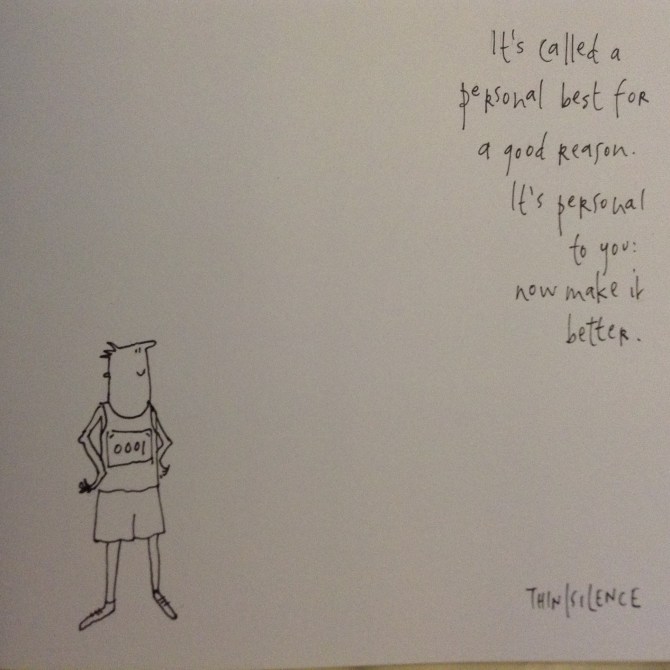 It's called a
personal best for
a good reason.
It's personal
to you:
now make it
better.
0001
THIN|SILENCE